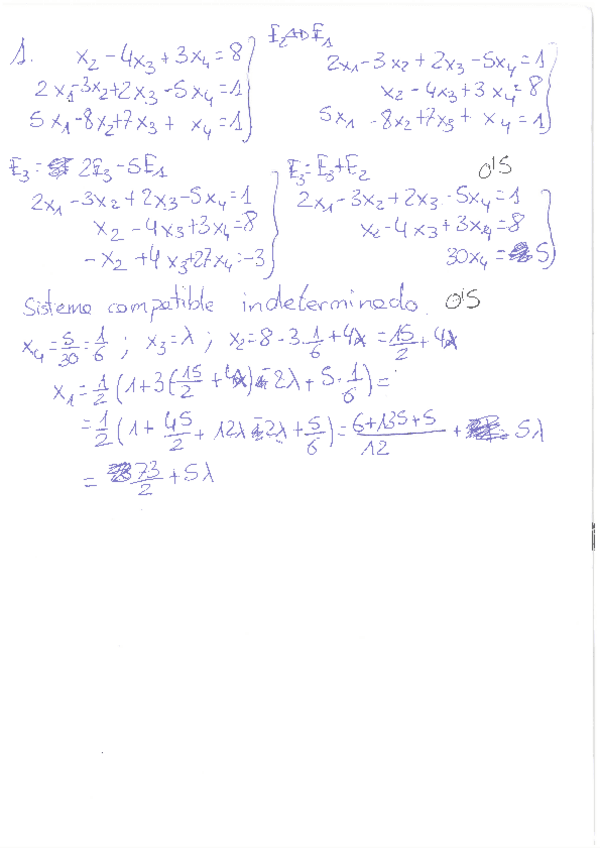 1. x₂ - 4x₃ + 3x₄ = 8
2x₁ - 3x₂ + 2x₃ - 5x₄ = 1
5x₁ - 8x₂ + 7x₃ + x₄ = 1
E₂ ↔ E₁
2x₁ - 3x₂ + 2x₃ - 5x₄ = 1
x₂ - 4x₃ + 3x₄ = 8
5x₁ - 8x₂ + 7x₃ + x₄ = 1
E₃ = 2E₃ - 5E₁
2x₁ - 3x₂ + 2x₃ - 5x₄ = 1
x₂ - 4x₃ + 3x₄ = 8
- x₂ + 4x₃ + 27x₄ = -3
E₃ = E₃ + E₂ 0'5
2x₁ - 3x₂ + 2x₃ - 5x₄ = 1
x₂ - 4x₃ + 3x₄ = 8
30x₄ = 5
Sistema compatible indeterminado. 0'5
x₄ = 5/30 = 1/6 ; x₃ = λ ; x₂ = 8 - 3·1/6 + 4λ = 15/2 + 4λ
x₁ = 1/2 (1 + 3(15/2 + 4λ) - 2λ + 5·1/6) =
= 1/2 (1 + 45/2 + 12λ - 2λ + 5/6) = (6 + 135 + 5)/12 + 5λ
= 73/2 + 5λ